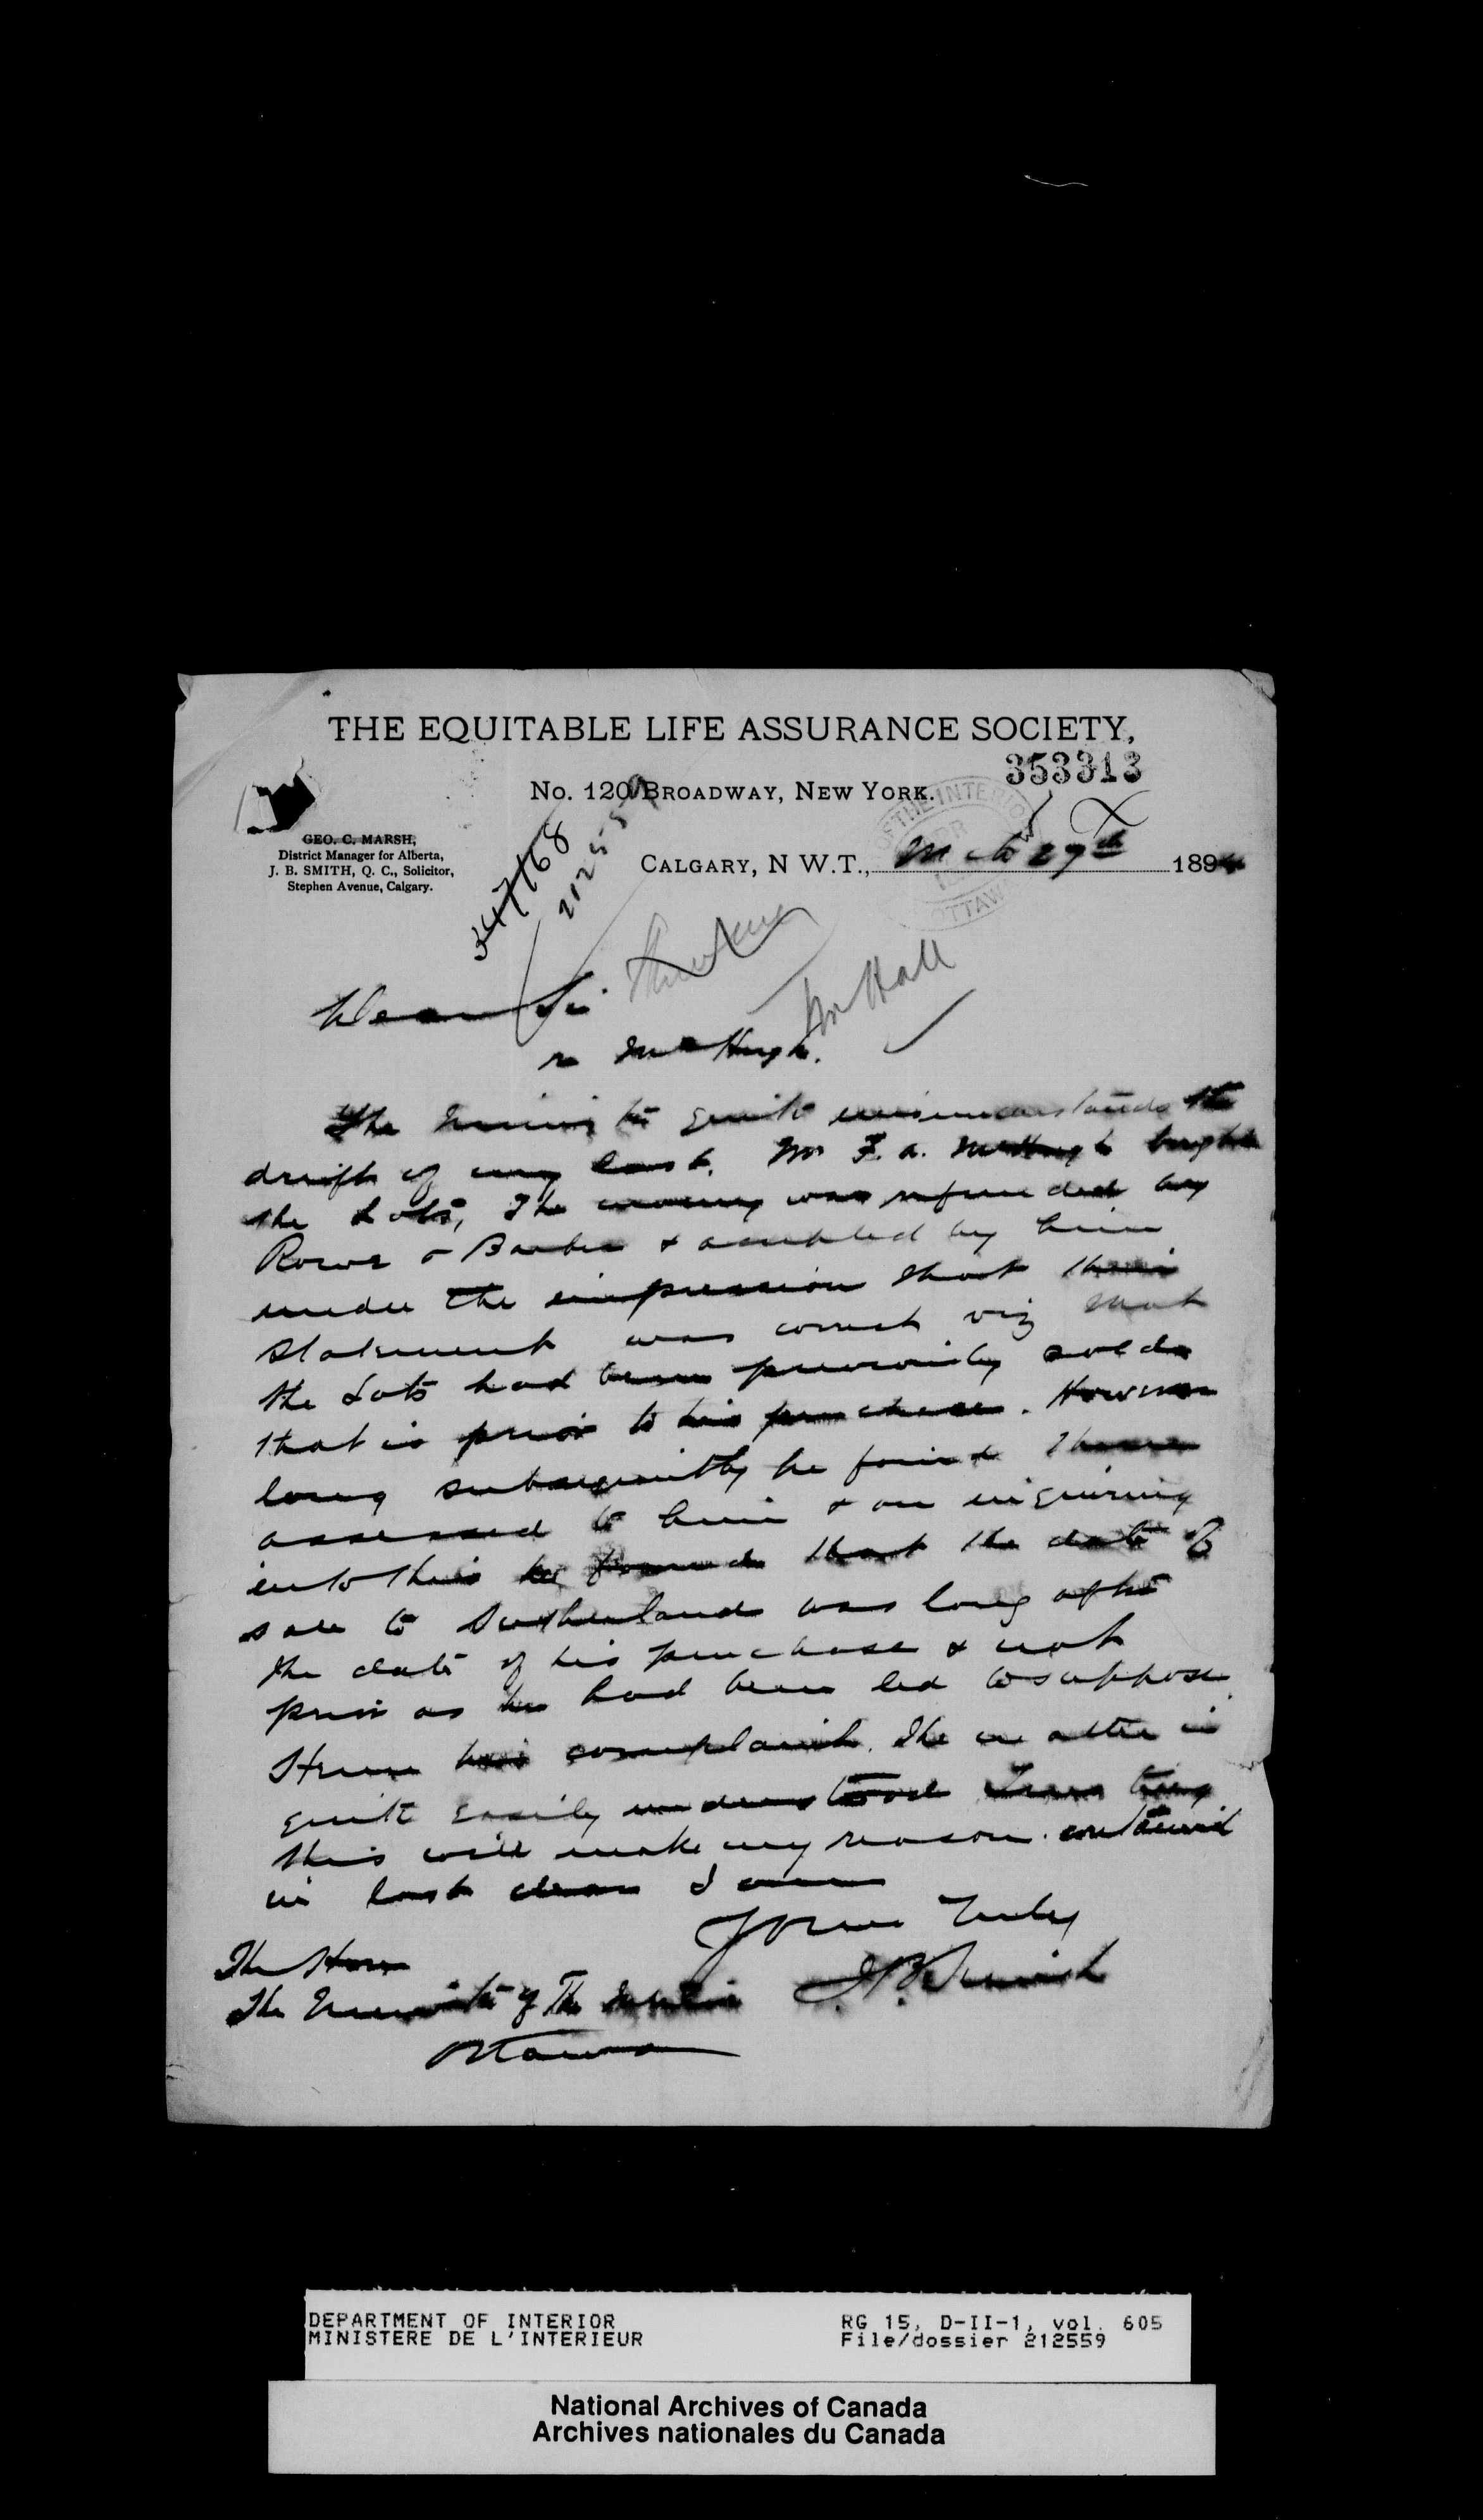 THE EQUITABLE LIFE ASSURANCE SOCIETY,
353313
No. 120 BROADWAY, NEW YORK.
GEO. C. MARSH,
District Manager for Alberta,
J. B. SMITH, Q. C., Solicitor,
Stephen Avenue, Calgary.
347168
21255
OF THE INTERIOR
OTTAWA
CALGARY, N W.T., Mch 27th 1894
Dear Sir
Mr Hall
re McHugh.
The Minister quite misunderstands the
drift of my last. Mr F. A. McHugh bought
the Lots, The money was refunded by
Rowe & Barber & accepted by him
under the impression that their
statement was correct viz that
the Lots had been previously sold
that is prior to his purchase. However
long subsequently he found these
assessed to him & on inquiring
into this he found that the date of
sale to Sutherland was long after
the date of his purchase & not
prior as he had been led to suppose
Hence his complaint. The matter is
quite easily understood
this will make my reason contained
in last clear I am
Yours Truly
J. B. Smith
The Hon
The Minister of The Interior
Ottawa
DEPARTMENT OF INTERIOR
MINISTERE DE L'INTERIEUR
RG 15, D-II-1, vol. 605
File/dossier 212559
National Archives of Canada
Archives nationales du Canada